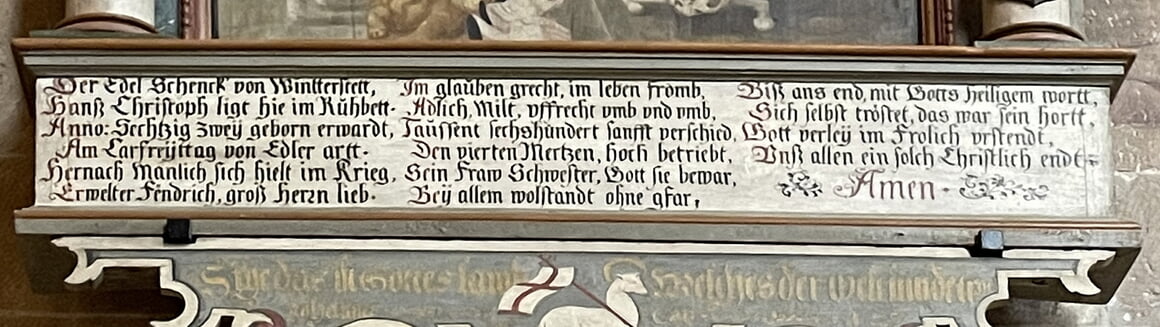 Der Edel Schenck von Wintterstett,
Hanß Christoph ligt hie im Rühbett.
Anno: Sechtzig zweÿ geborn erwardt,
Am Carfreÿttag von Edler artt.
Hernach Manlich sich hielt im Krieg,
Erwelter Fendrich, groß Herzn lieb.
Im glauben grecht, im leben fromb,
Adlich, Milt, vffrecht vmb vnd vmb,
Taussent sechshundert sanfft verschied,
Den vierten Mertzen, hoch betriebt,
Sein Fraw Schwester, Gott sie bewar,
Beÿ allem wolstandt ohne gfar,
Biß ans end, mit Gotts heiligem wortt,
Sich selbst tröstet, das war sein hortt,
Gott verleÿ im Frolich vrstendt,
Vnß allen ein solch Christlich endt.
Amen.
Gottes lamb
Welches der welt